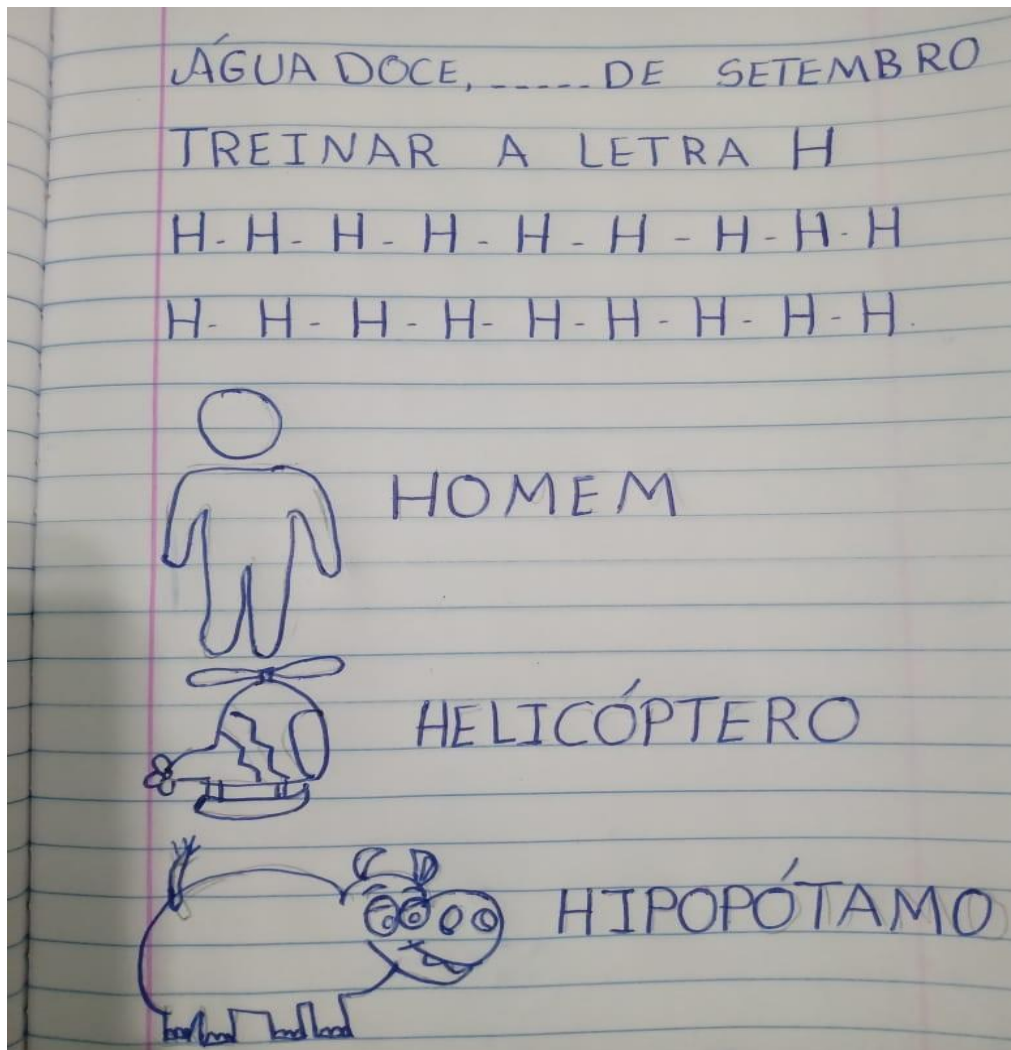 ÁGUA DOCE, ----- DE SETEMBRO
TREINAR A LETRA H
H - H - H - H - H - H - H - H - H
H - H - H - H - H - H - H - H - H.
HOMEM
HELICÓPTERO
HIPOPÓTAMO